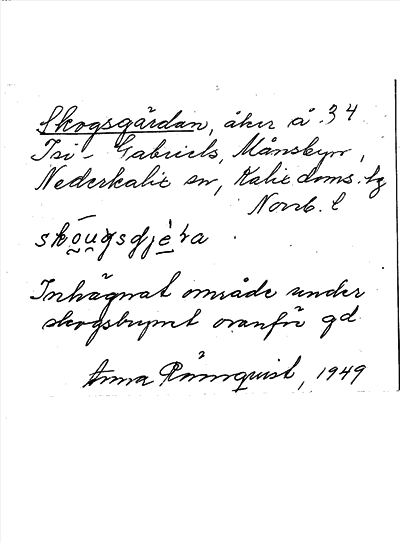 Skogsgärdan, åker å 34
Isi-Gabriels, Månsbyn,
Nederkalix sn, Kalix doms. tg
Norrb. l
skọ̄u̯gsgjè̱ra
Inhägnat område under
skogsbrynet ovanför gd
Anna Rönnquist, 1949